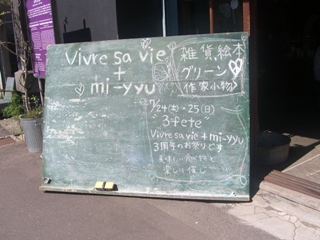 Vivre sa vie
+
mi-yyu
雑貨 絵本
グリーン
作家小物
7/24(土)・25(日)
"3fete"
Vivre sa vie + mi-yyu
3周年のお祭りです
美味しい
楽しい催し